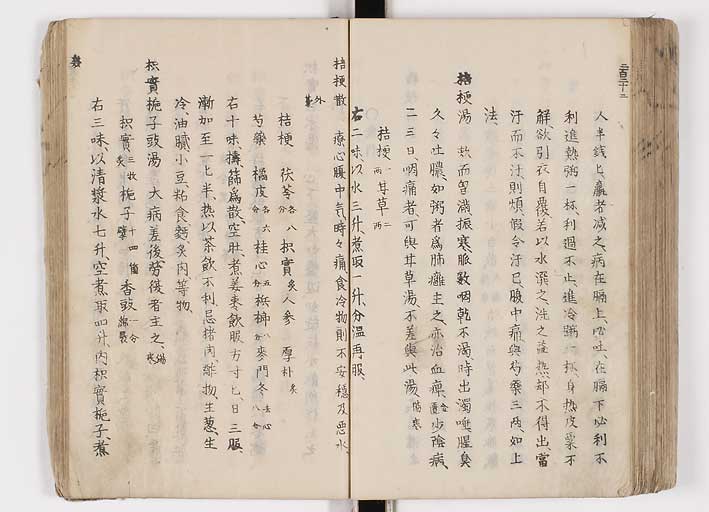 二百三十二
人半銭匕、羸者減之、病在膈上、必吐、在膈下必利、不
利進熱粥一杯、利過不止、進冷粥一杯、身热皮粟不
解、欲引衣自覆、若以水潠之、洗之、益热却不得出、當
汗而不汗則煩、假令汗已、腹中痛、與芍薬三両、如上
法、
桔梗湯 欬而胷満、振寒、脉數、咽乾不渇、時出濁唾腥臭
久々吐膿、如粥者、爲肺癰、主之、亦治血痺、少陰病、
二三日、咽痛者、可與甘草湯、不差與此湯、傷寒
桔梗 一両 甘草 二両
右二味以水三升、煮取一升、分温再服、
桔梗散 療心腹中気時々痛、食冷物則不安穏及悪水、
外臺
桔梗 伏苓 各八分 枳實 炙 人参 厚朴 炙
芍薬 橘皮 各六分 桂心 五分 栟榔 麥門冬 去心 八分
右十味、擣篩爲散、空肚、煮姜棗飲服方寸匕、日三服、
漸加至一匕半、热以茶飲不利、忌猪肉、酢物、生葱、生
冷、油膩、小豆、粘食、麪、炙肉、等物、
枳實梔子豉湯 大病差後、労復者主之、傷寒
枳實 三枚炙 梔子 十四箇擘 香豉 一升綿裹
右三味、以清漿水七升、空煮取四升、内枳實梔子、煮